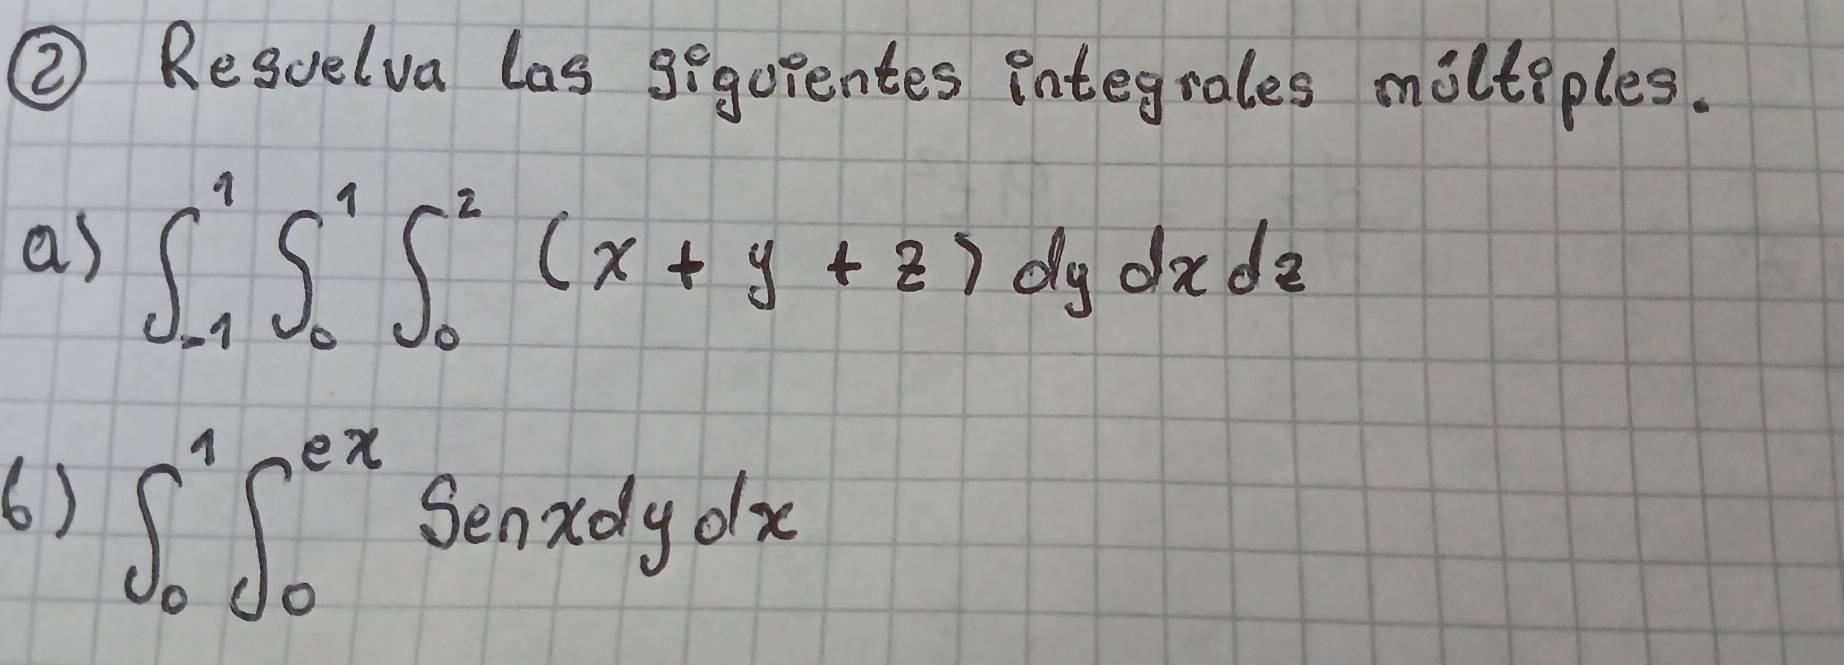 ② Resuelva las siguientes integrales múltiples.
a) ∫₋₁¹ ∫₀¹ ∫₀² (x + y + z) dy dx dz
b) ∫₀¹ ∫₀ᵉˣ Sen x dy dx